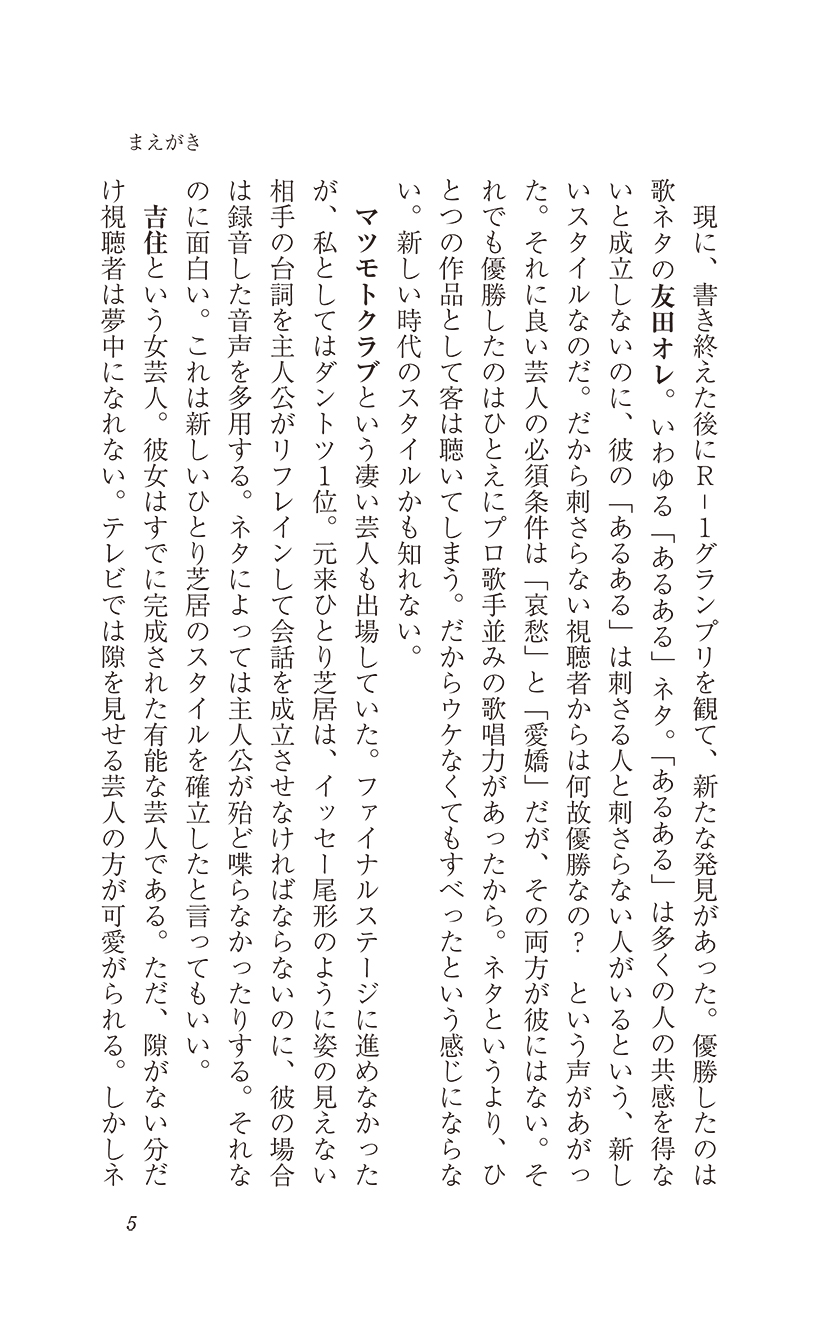 まえがき
　現に、書き終えた後にＲ－１グランプリを観て、新たな発見があった。優勝したのは
歌ネタの友田オレ。いわゆる「あるある」ネタ。「あるある」は多くの人の共感を得な
いと成立しないのに、彼の「あるある」は刺さる人と刺さらない人がいるという、新し
いスタイルなのだ。だから刺さらない視聴者からは何故優勝なの？　という声があがっ
た。それに良い芸人の必須条件は「哀愁」と「愛嬌」だが、その両方が彼にはない。そ
れでも優勝したのはひとえにプロ歌手並みの歌唱力があったから。ネタというより、ひ
とつの作品として客は聴いてしまう。だからウケなくてもすべったという感じにならな
い。新しい時代のスタイルかも知れない。
　マツモトクラブという凄い芸人も出場していた。ファイナルステージに進めなかった
が、私としてはダントツ１位。元来ひとり芝居は、イッセー尾形のように姿の見えない
相手の台詞を主人公がリフレインして会話を成立させなければならないのに、彼の場合
は録音した音声を多用する。ネタによっては主人公が殆ど喋らなかったりする。それな
のに面白い。これは新しいひとり芝居のスタイルを確立したと言ってもいい。
　吉住という女芸人。彼女はすでに完成された有能な芸人である。ただ、隙がない分だ
け視聴者は夢中になれない。テレビでは隙を見せる芸人の方が可愛がられる。しかしネ
5